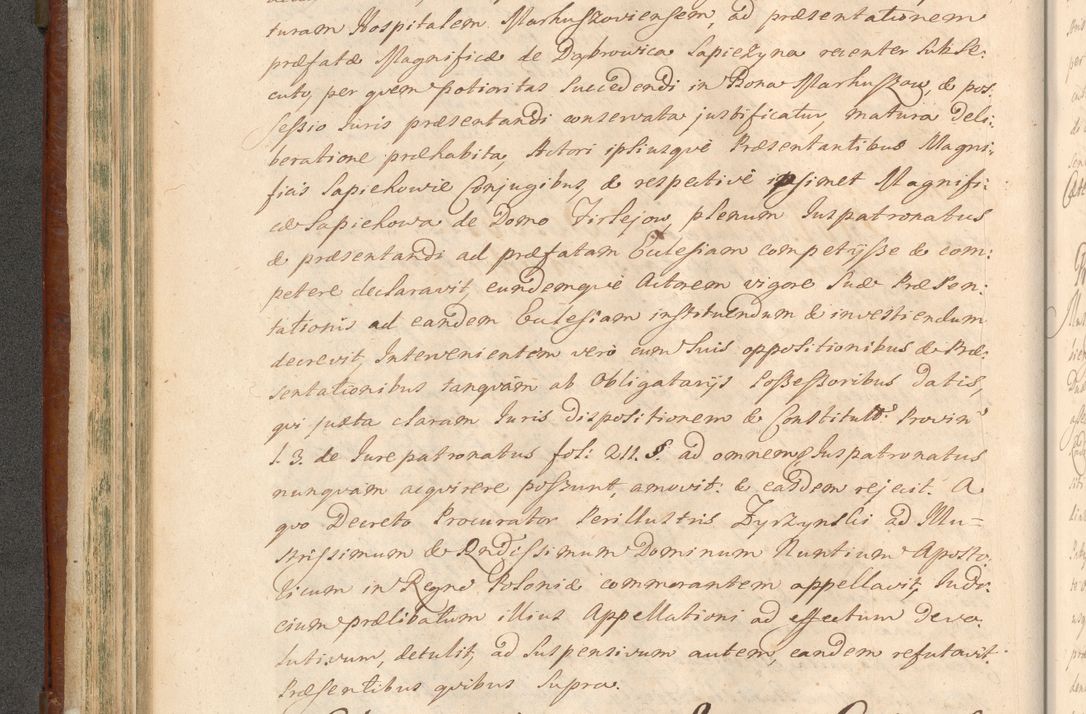 turam Hospitalem Markuszoviensem, ad præsentationem
præfatæ Magnificæ de Dąbrowica Sapieżyna recenter subse-
cuto, per quem potioritas succedendi in Bona Markuszow, & pos-
sessio Juris præsentandi conservata justificatur, matura deli-
beratione præhabita, Actori ipsiusquè Præsentantibus Magni-
ficis Sapiehowie Conjugibus, & respectivè ipsimet Magnifi-
cæ Sapiehowa de Domo Firlejow, plenum Juspatronatus
& præsentandi ad præfatam Ecclesiam competijsse & com-
petere declaravit, eundemquè Actorem vigore suæ Præsen-
tationis ad eandem Ecclesiam instituendum & investiendum
decrevit, Intervenientem verò cum suis oppositionibus & Præ-
sentationibus tanquàm ab Obligatarijs Possessoribus datis,
qui juxta claram Juris dispositionem & Constitutt: Provin:
l. 3. de Jurepatronatus fol: 211. §. ad omnem, Juspatronatus
nunquàm acquirere possunt, amovit. & easdem rejecit. A
quo Decreto Procurator Perillustris Zyrzynski ad Illu-
strissimum & Rndissimum Dominum Nuntium Aposto-
licum in Regno Poloniæ commorantem appellavit, Judi-
cium prælibatum illius Appellationi ad effectum devo-
lutivum, detulit, ad suspensivum autem, eandem refutavit.
Præsentibus quibus supra.